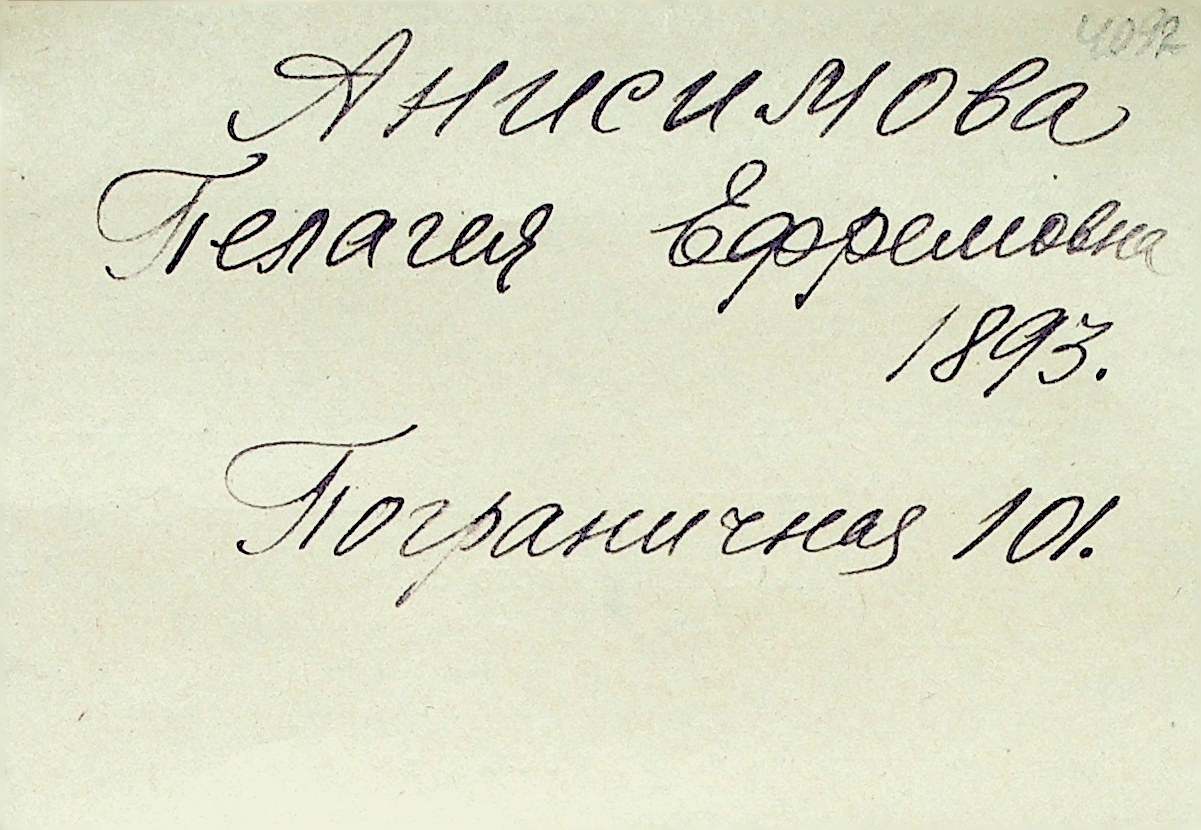 Анисимова
Пелагея Ефремовна
1893.
Пограничная 101.